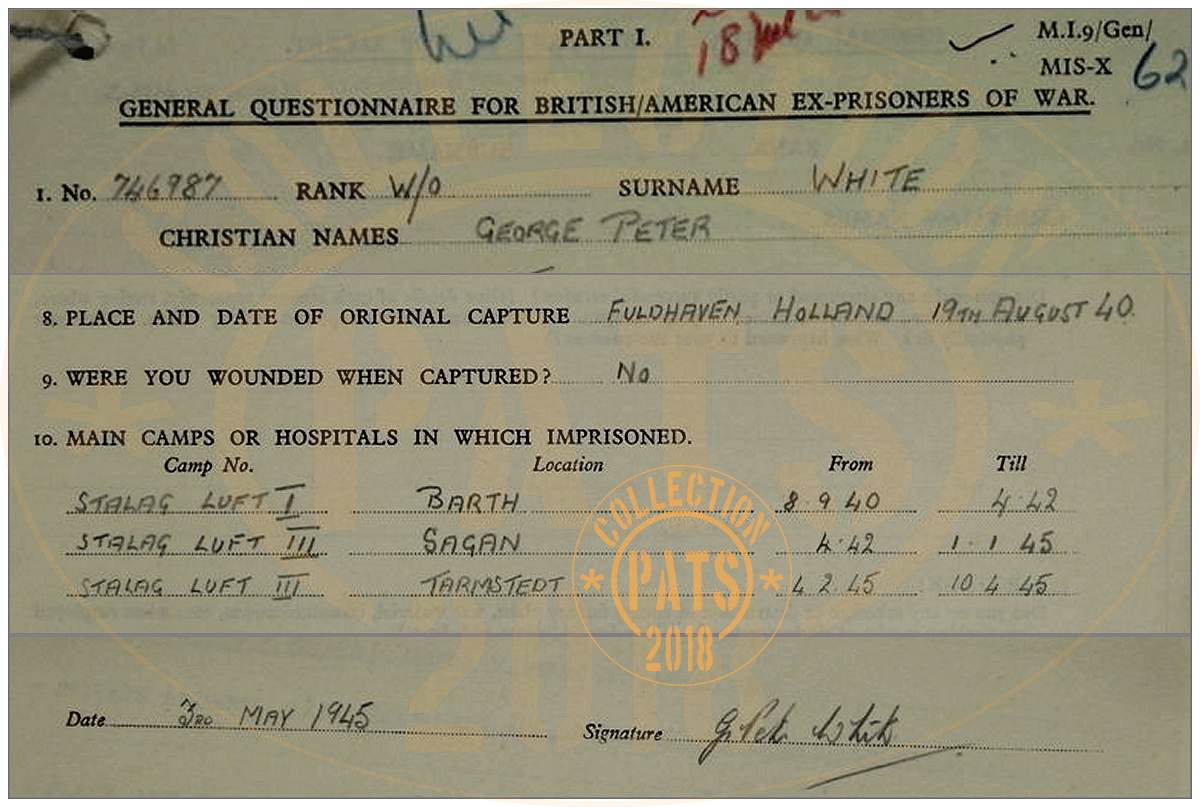 PART I.
18
M.I.9/Gen/
MIS-X 62
GENERAL QUESTIONNAIRE FOR BRITISH/AMERICAN EX-PRISONERS OF WAR.
1. No. 746987 RANK W/O SURNAME WHITE
CHRISTIAN NAMES GEORGE PETER
8. PLACE AND DATE OF ORIGINAL CAPTURE FULDHAVEN HOLLAND 19TH AUGUST 40.
9. WERE YOU WOUNDED WHEN CAPTURED? No
10. MAIN CAMPS OR HOSPITALS IN WHICH IMPRISONED.
Camp No. Location From Till
STALAG LUFT I BARTH 8·9·40 4·42
STALAG LUFT III SAGAN 4·42 1·1·45
STALAG LUFT III TARMSTEDT 4 2 45 10 4 45
COLLECTION
* PATS *
2018
Date 3RD MAY 1945
Signature G. Peter White